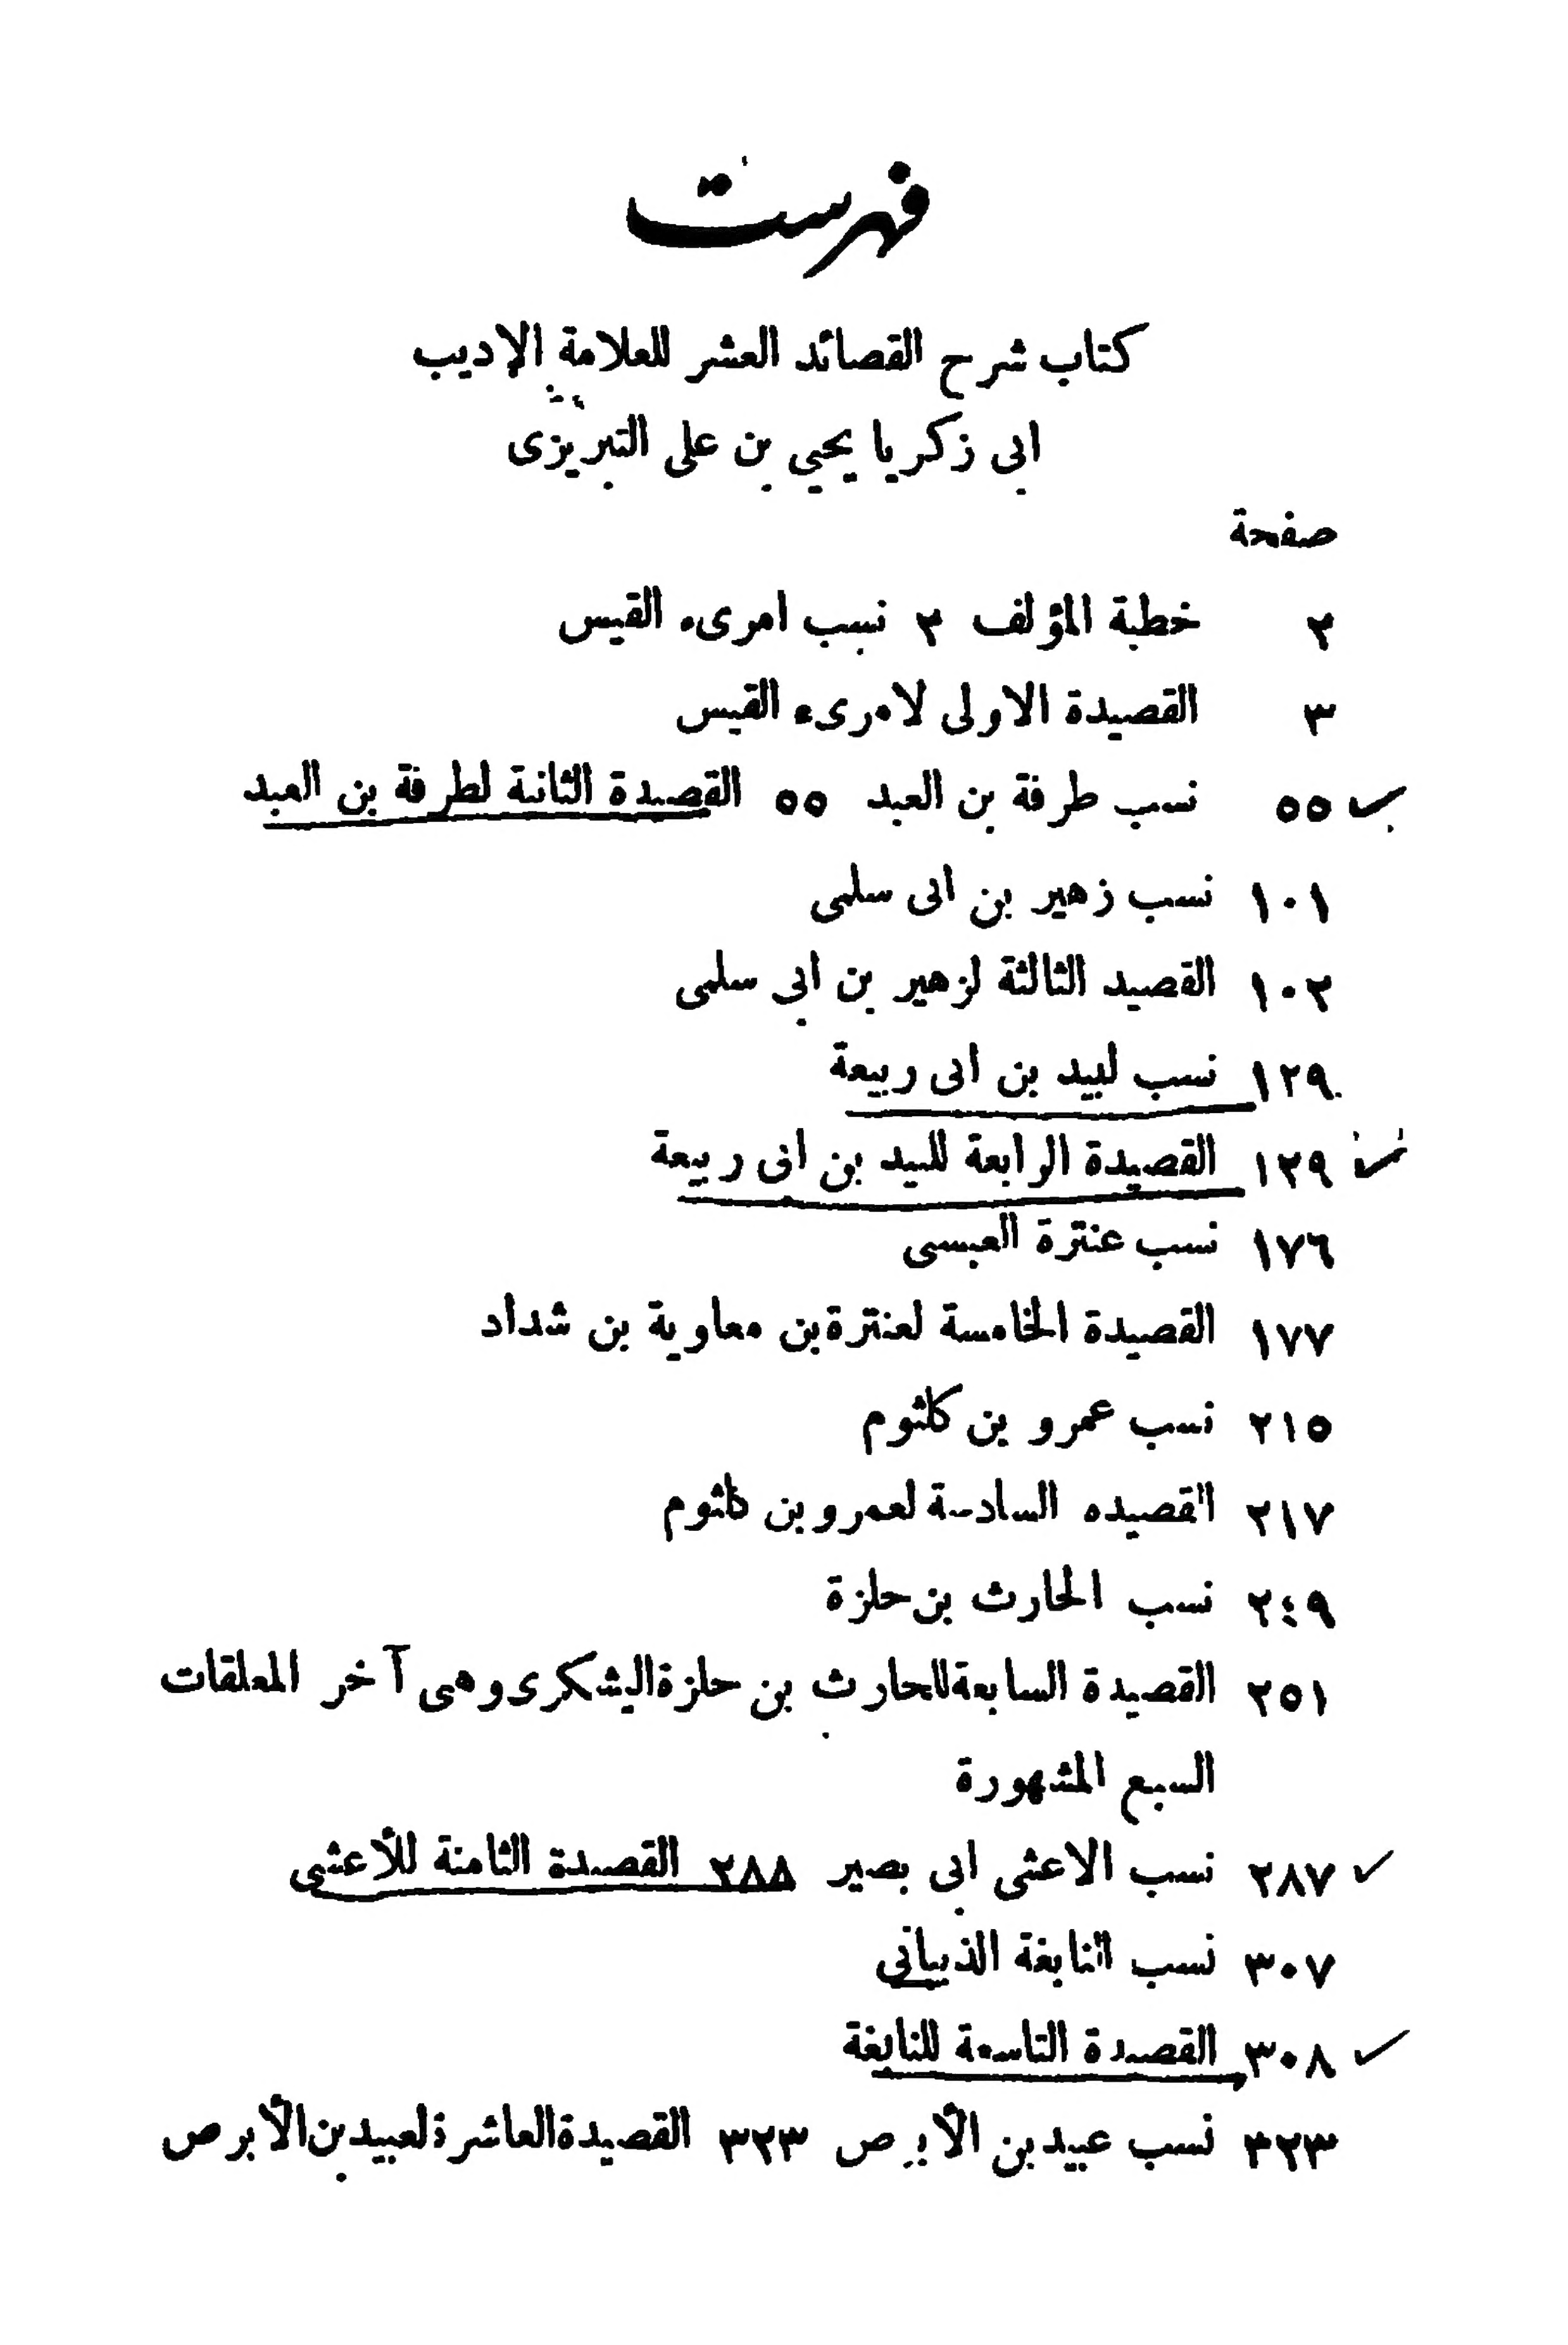 فهرست
كتاب شرح القصائد العشر للعلامة الإديب
ابى زكريا يحيي بن على التبريزى
صفحة
٢ خطبة المؤلف ٢ نسب امرىء القيس
٣ القصيدة الاولى لامرىء القيس
٥٥ نسب طرفة بن العبد ٥٥ القصيدة الثانية لطرفة بن العبد
١٠١ نسب زهير بن ابى سلمى
١٠٢ القصيد الثالثة لزهير بن ابى سلمى
١٢٩ نسب لبيد بن ابى ربيعة
١٢٩ القصيدة الرابعة للبيد بن ابى ربيعة
١٧٦ نسب عنترة العبسى
١٧٧ القصيدة الخامسة لعنترة بن معاوية بن شداد
٢١٥ نسب عمرو بن كلثوم
٢١٧ القصيده السادسة لعمرو بن كلثوم
٢٤٩ نسب الحارث بن حلزة
٢٥١ القصيدة السابعة للحارث بن حلزة اليشكرى وهى آخر المعلقات
السبع المشهورة
٢٨٧ نسب الاعشى ابى بصير ٢٨٨ القصيدة الثامنة للأعشى
٣٠٧ نسب النابغة الذبيانى
٣٠٨ القصيدة التاسعة للنابغة
٣٢٣ نسب عبيد بن الأبرص ٣٢٣ القصيدة العاشرة لعبيد بن الأبرص